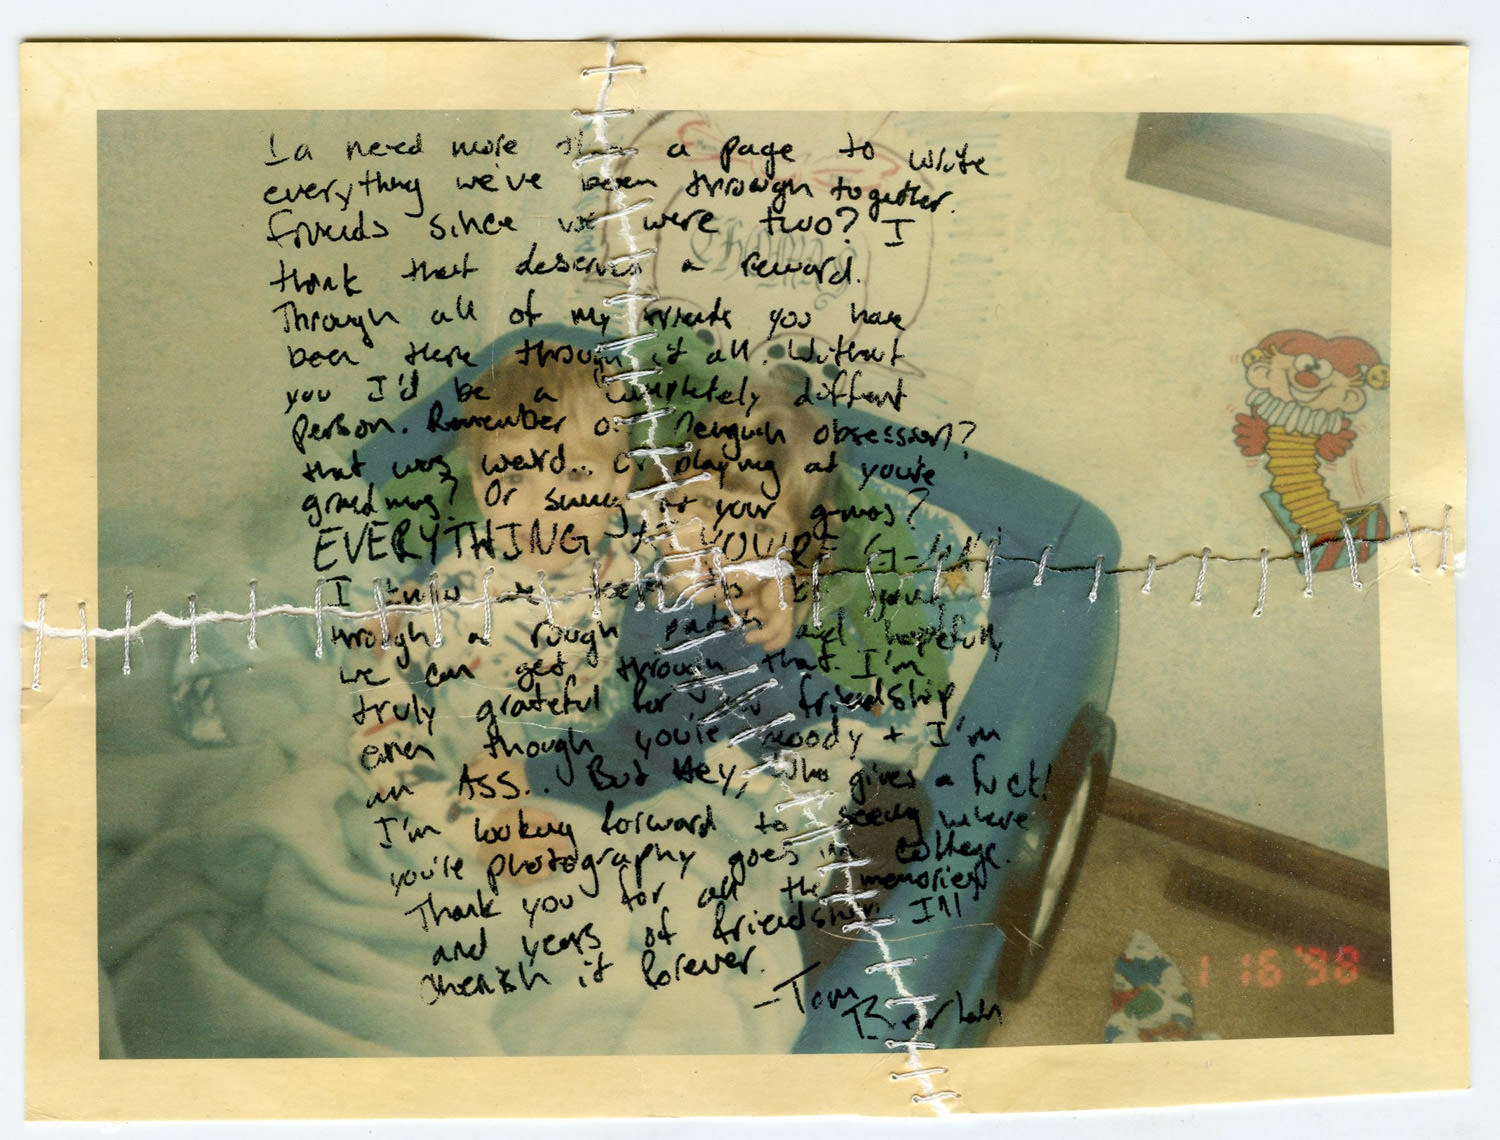 I'd need more than a page to write
everything we've been through together.
friends since we were two? I
think that deserves a reward.
Through all of my friends you have
been there through it all. Without
you I'd be a completely different
person. Remember our penguin obsession?
that was weird... Or playing at you're
grandmas? Or swing at your g-mas?
EVERYTHING AT YOU'RE G-MA!
I we've been
through a rough patch and hopefully
we can get through that. I'm
truly grateful for your friendship
even though you're moody + I'm
an ASS.. But Hey, who gives a fuck!
I'm looking forward to seeing where
you're photography goes in college.
Thank you for all the memories
and years of friendship. I'll
cherish it forever.
-Tom
1 16 '98